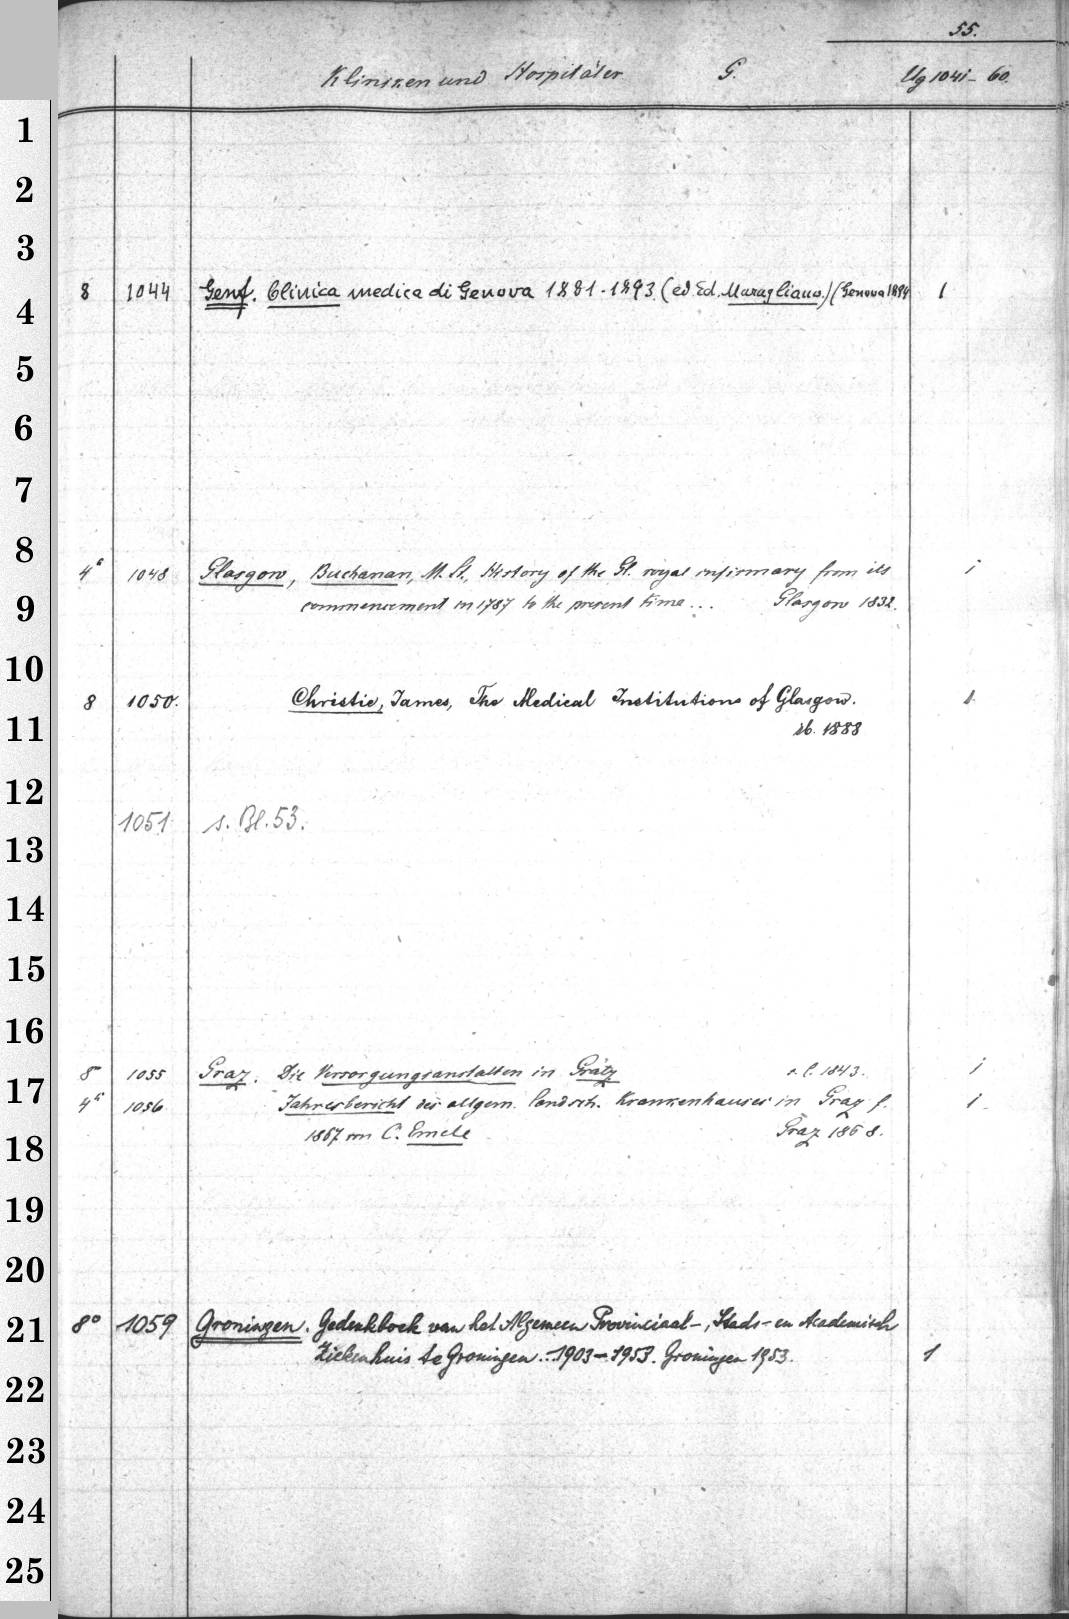 55.
Kliniken und Hospitäler G. Ug 1041-60.
1
2
3
8 1044 Genf. Clinica medica di Genova 1881-1893. (ed. Ed. Maragliano.) (Genova 1894 1
4
5
6
7
8
4° 1048 Glasgow, Buchanan, M. St., History of the Gl. royal infirmary from its 1
commencement in 1787 to the present time... Glasgow 1832.
9
10
8 1050. Christie, James, The Medical Institutions of Glasgow. 1.
ib. 1888
11
12
1051 s. Bl. 53.
13
14
15
16
8° 1055 Graz. Die Versorgungsanstalten in Grätz s. l. 1843. 1
17
4° 1056 Jahresbericht des allgem. landsch. Krankenhauses in Graz f. 1.
1867 von C. Emele Graz 1868.
18
19
20
21
8° 1059 Groningen. Gedenkboek van het Algemeen Provinciaal-, Stads- en Academisch
Ziekenhuis te Groningen... 1903-1953. Groningen 1953. 1
22
23
24
25